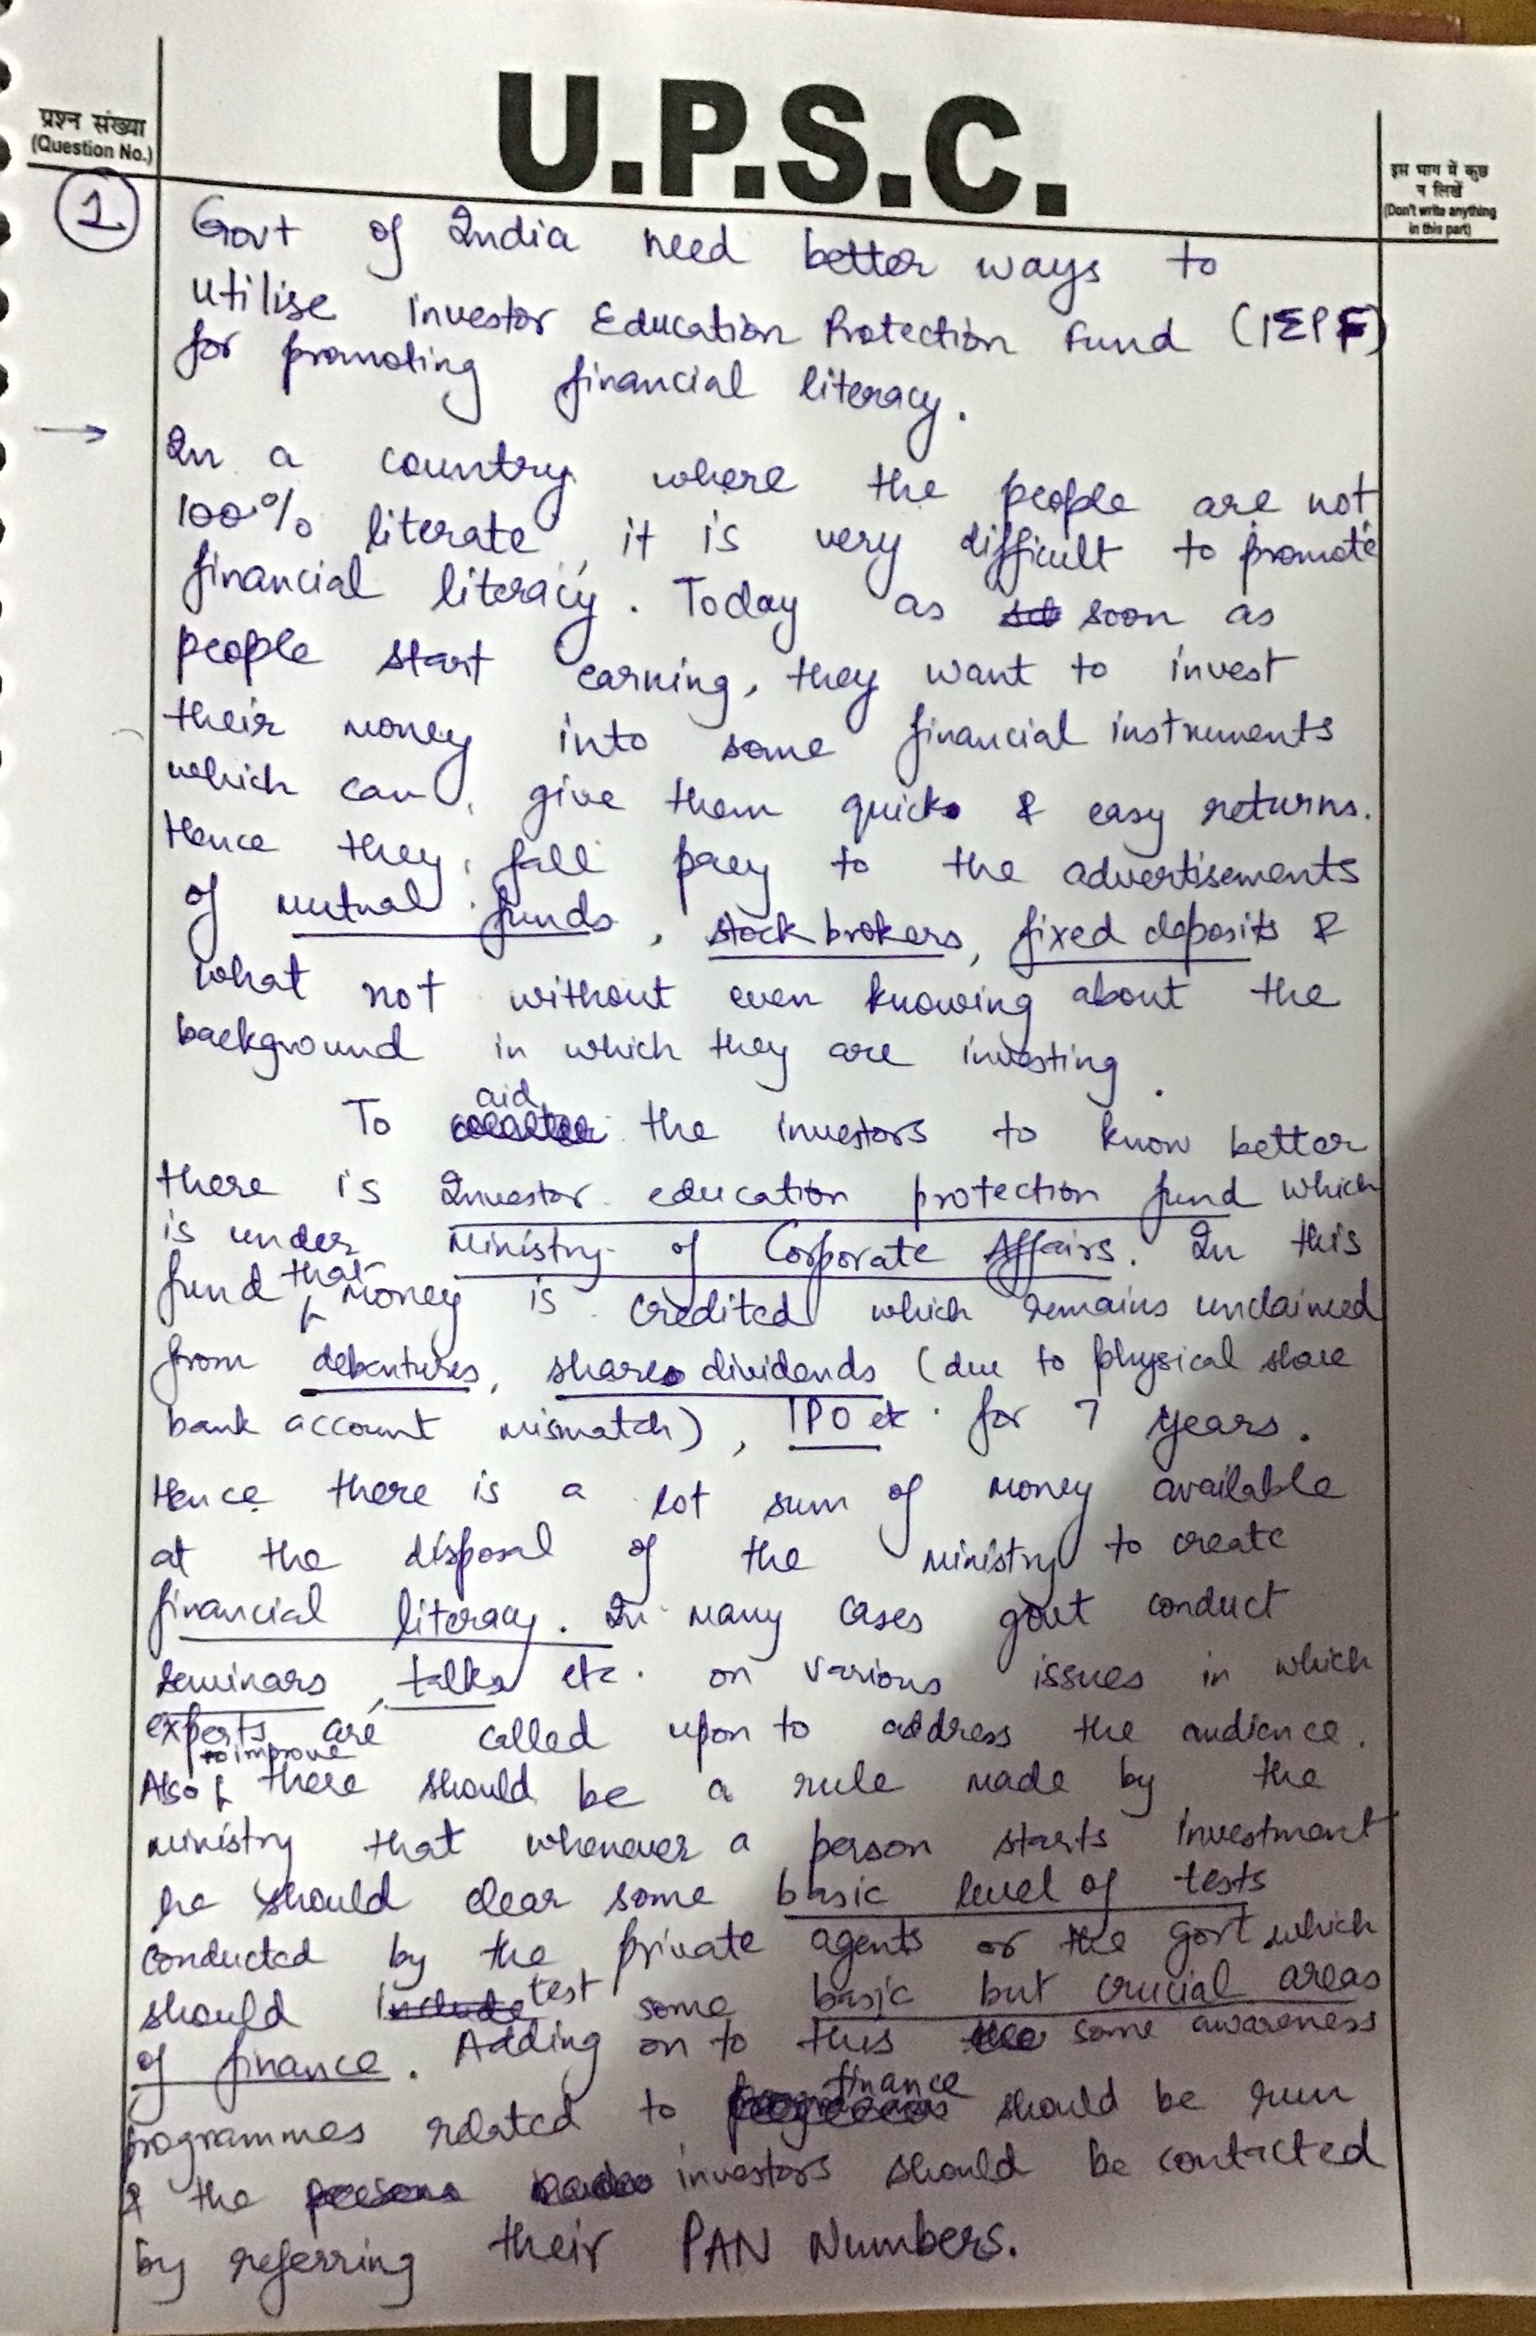 U.P.S.C.
प्रश्न संख्या
(Question No.)
इस भाग में कुछ
न लिखें
(Don't write anything
in this part)
1
Govt of India need better ways to
utilise Investor Education Protection Fund (IEPF)
for promoting financial literacy.
→ In a country where the people are not
100% literate, it is very difficult to promote
financial literacy. Today as soon as
people start earning, they want to invest
their money into some financial instruments
which can give them quick & easy returns.
Hence they fall prey to the advertisements
of mutual funds, stock brokers, fixed deposits &
what not without even knowing about the
background in which they are investing.
To aid the investors to know better
there is Investor education protection fund which
is under Ministry of Corporate Affairs. In this
fund that money is credited which remains unclaimed
from debentures, share dividends (due to physical share
bank account mismatch), IPO etc. for 7 years.
Hence there is a lot sum of money available
at the disposal of the ministry to create
financial literacy. In many cases govt conduct
seminars, talks etc. on various issues in which
experts are called upon to address the audience.
Also to improve there should be a rule made by the
ministry that whenever a person starts investment
he should clear some basic level of tests
conducted by the private agents or the govt which
should test some basic but crucial areas
of finance. Adding on to this some awareness
programmes related to finance should be run
& the investors should be contacted
by referring their PAN Numbers.